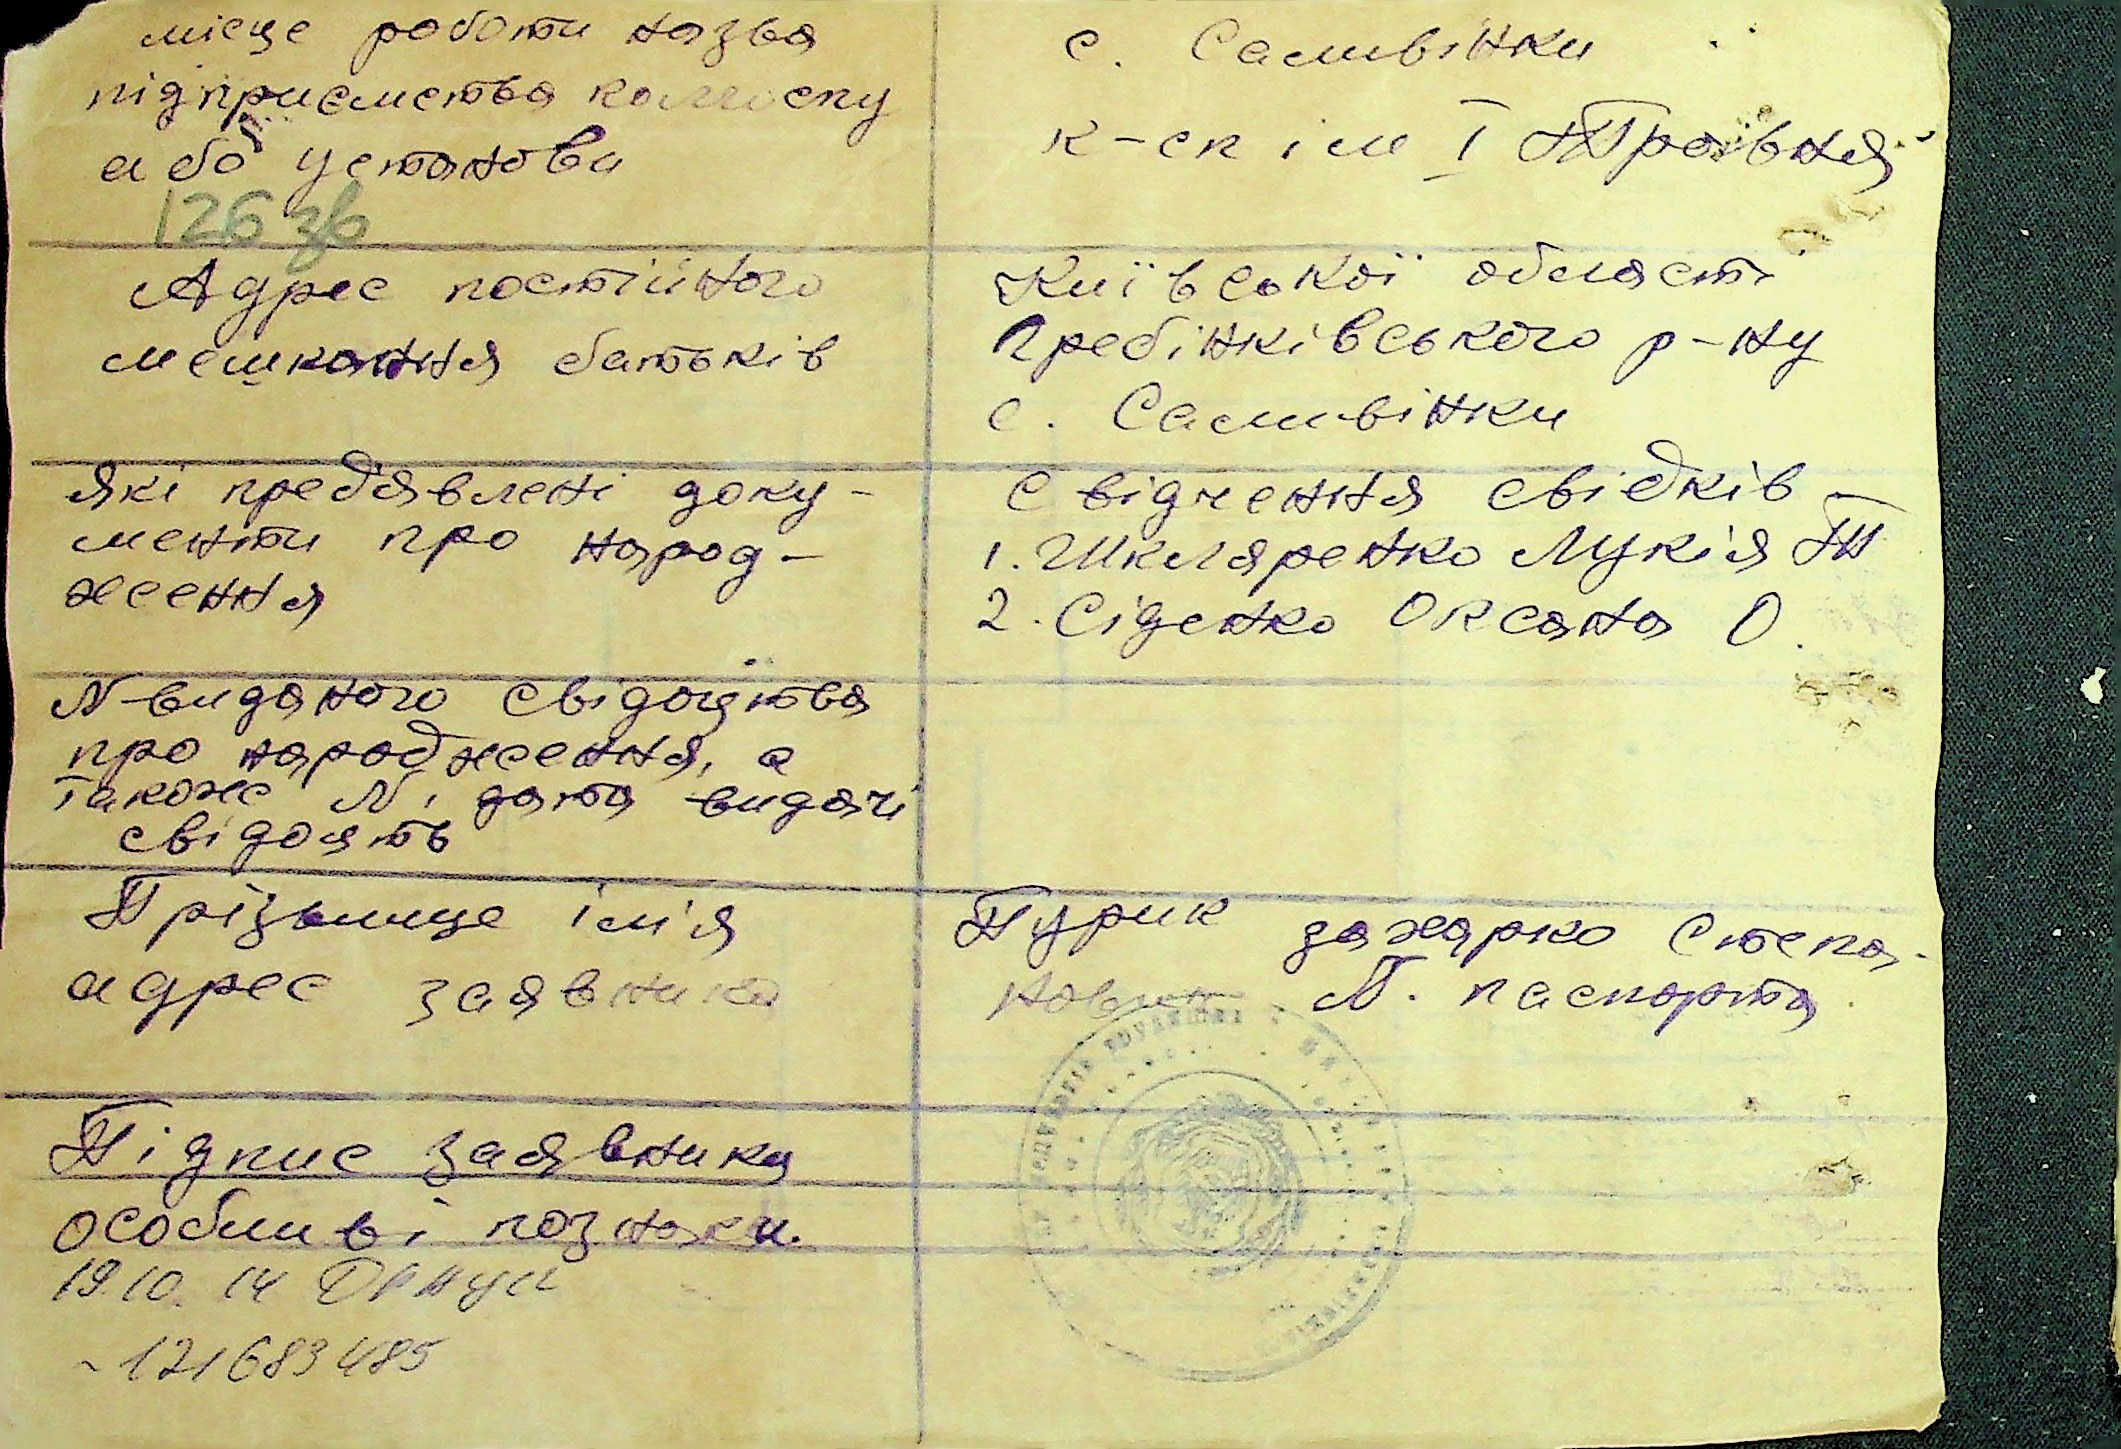 місце роботи назва
підприємства колгоспу
або установи
126 зв
с. Саливінки
к-сп ім І Травня
Адрес постійного
мешкання батьків
Київської області
Гребінківського р-ну
с. Саливінки
які предявлені доку-
менти про народ-
ження
Свідчення свідків –
1. Шкляренко Лукія П
2. Сіденко Оксана О.
N виданого свідоцтва
про народження, а
також N і дата видачі
свідоцтв
Прізвище ім'я
адрес заявника
Пурик захарко Степа-
нович N. паспорта
Підпис заявника
особливі познаки.
19.10. 14
121683485